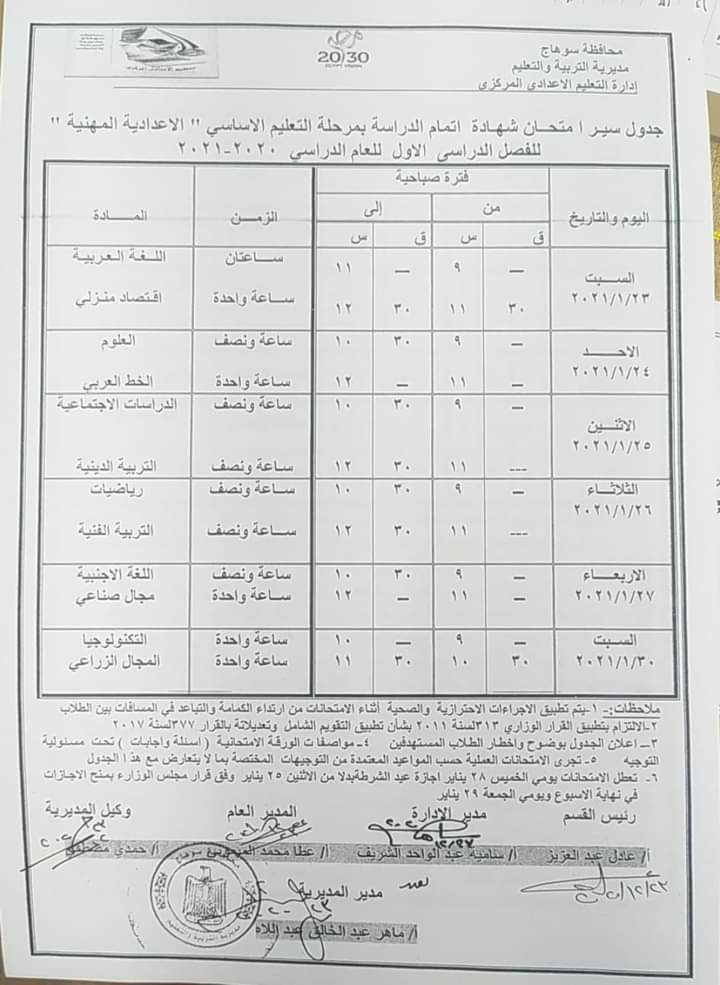 محافظة سوهاج
مديرية التربية والتعليم
إدارة التعليم الاعدادي المركزي
20/30
EGYPT VISION
جدول سير ا متحـان شهـادة اتمام الدراسة بمرحلة التعليم الاساسي " الاعدادية المهنية "
للفصل الدراسي الاول للعام الدراسي ٢٠٢٠-٢٠٢١
اليوم والتاريخ فترة صباحية الزمـن المـــادة
من إلى
ق س ق س
السبت ٢٠٢١/١/٢٣
— ٩ — ١١ ساعتان اللغة العربية
٣٠ ١١ ٣٠ ١٢ ساعة واحدة اقتصاد منزلي
الاحـــد ٢٠٢١/١/٢٤
— ٩ ٣٠ ١٠ ساعة ونصف العلوم
— ١١ — ١٢ ساعة واحدة الخط العربي
الاثنـــين ٢٠٢١/١/٢٥
— ٩ ٣٠ ١٠ ساعة ونصف الدراسات الاجتماعية
--- ١١ ٣٠ ١٢ ساعة ونصف التربية الدينية
الثلاثـاء ٢٠٢١/١/٢٦
— ٩ ٣٠ ١٠ ساعة ونصف رياضيات
--- ١١ ٣٠ ١٢ ساعة ونصف التربية الفنية
الاربعـــاء ٢٠٢١/١/٢٧
— ٩ ٣٠ ١٠ ساعة ونصف اللغة الاجنبية
— ١١ — ١٢ ساعة واحدة مجال صناعي
السبت ٢٠٢١/١/٣٠
— ٩ — ١٠ ساعة واحدة التكنولوجيا
٣٠ ١٠ ٣٠ ١١ ساعة واحدة المجال الزراعي
ملاحظات:- ١-يتم تطبيق الاجراءات الاحترازية والصحية أثناء الامتحانات من ارتداء الكمامة والتباعد في المسافات بين الطلاب
٢-الالتزام بتطبيق القرار الوزاري ٣١٣لسنة ٢٠١١ بشأن تطبيق التقويم الشامل وتعديلاتة بالقرار ٣٧٧لسنة ٢٠١٧
٣-اعلان الجدول بوضوح واخطار الطلاب المستهدفين ٤-مواصفات الورقة الامتحانية ( اسئلة واجابات ) تحت مسئولية
التوجيه ٥-تجرى الامتحانات العملية حسب المواعيد المعتمدة من التوجيهات المختصة بما لا يتعارض مع هذا الجدول
٦- تعطل الامتحانات يومي الخميس ٢٨ يناير اجازة عيد الشرطةبدلا من الاثنين ٢٥ يناير وفق قرار مجلس الوزراء بمنح الاجازات
في نهاية الاسبوع ويومي الجمعة ٢٩ يناير
رئيس القسم مدير الادارة المدير العام وكيل المديرية
أ/ عادل عبد العزيز أ/ سامية عبد الواحد الشريف أ/ عطا محمد أ/ حمدي مصطفى
مدير المديرية
أ/ ماهر عبد الخالق عبد اللاه